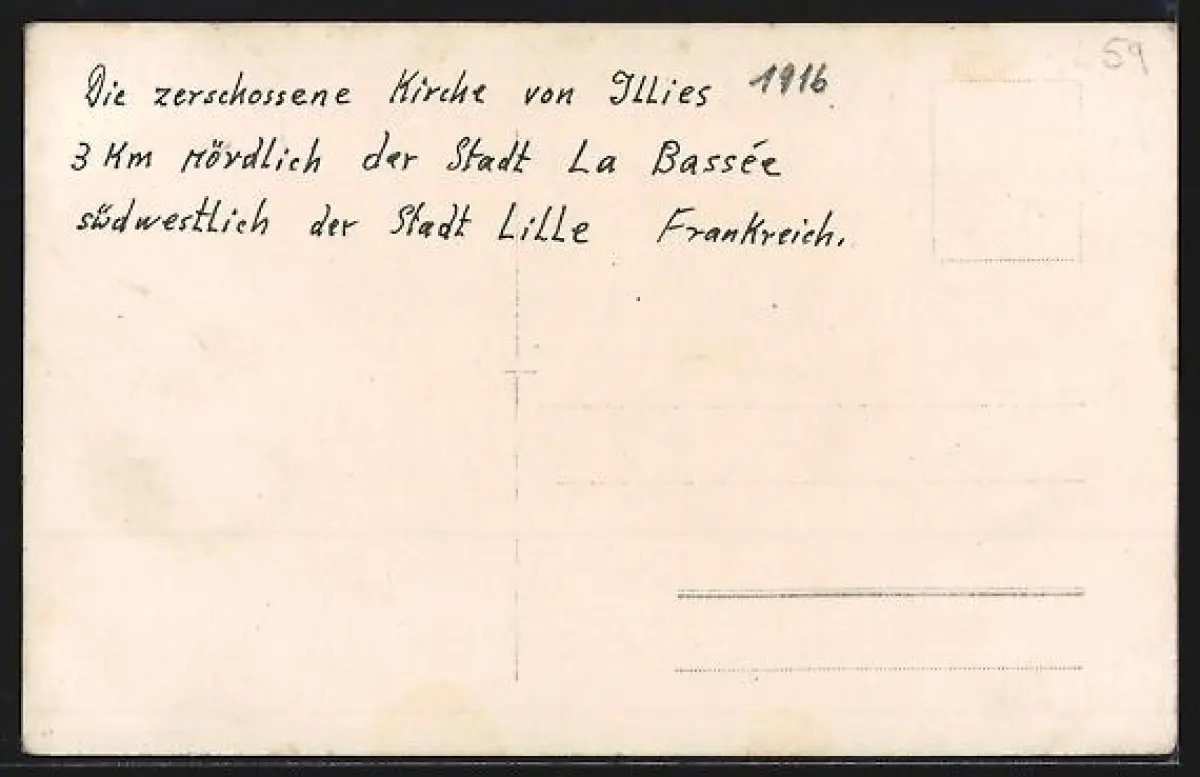 59
Die zerschossene Kirche von Illies 1916
3 Km nördlich der Stadt La Bassée
südwestlich der Stadt Lille Frankreich.